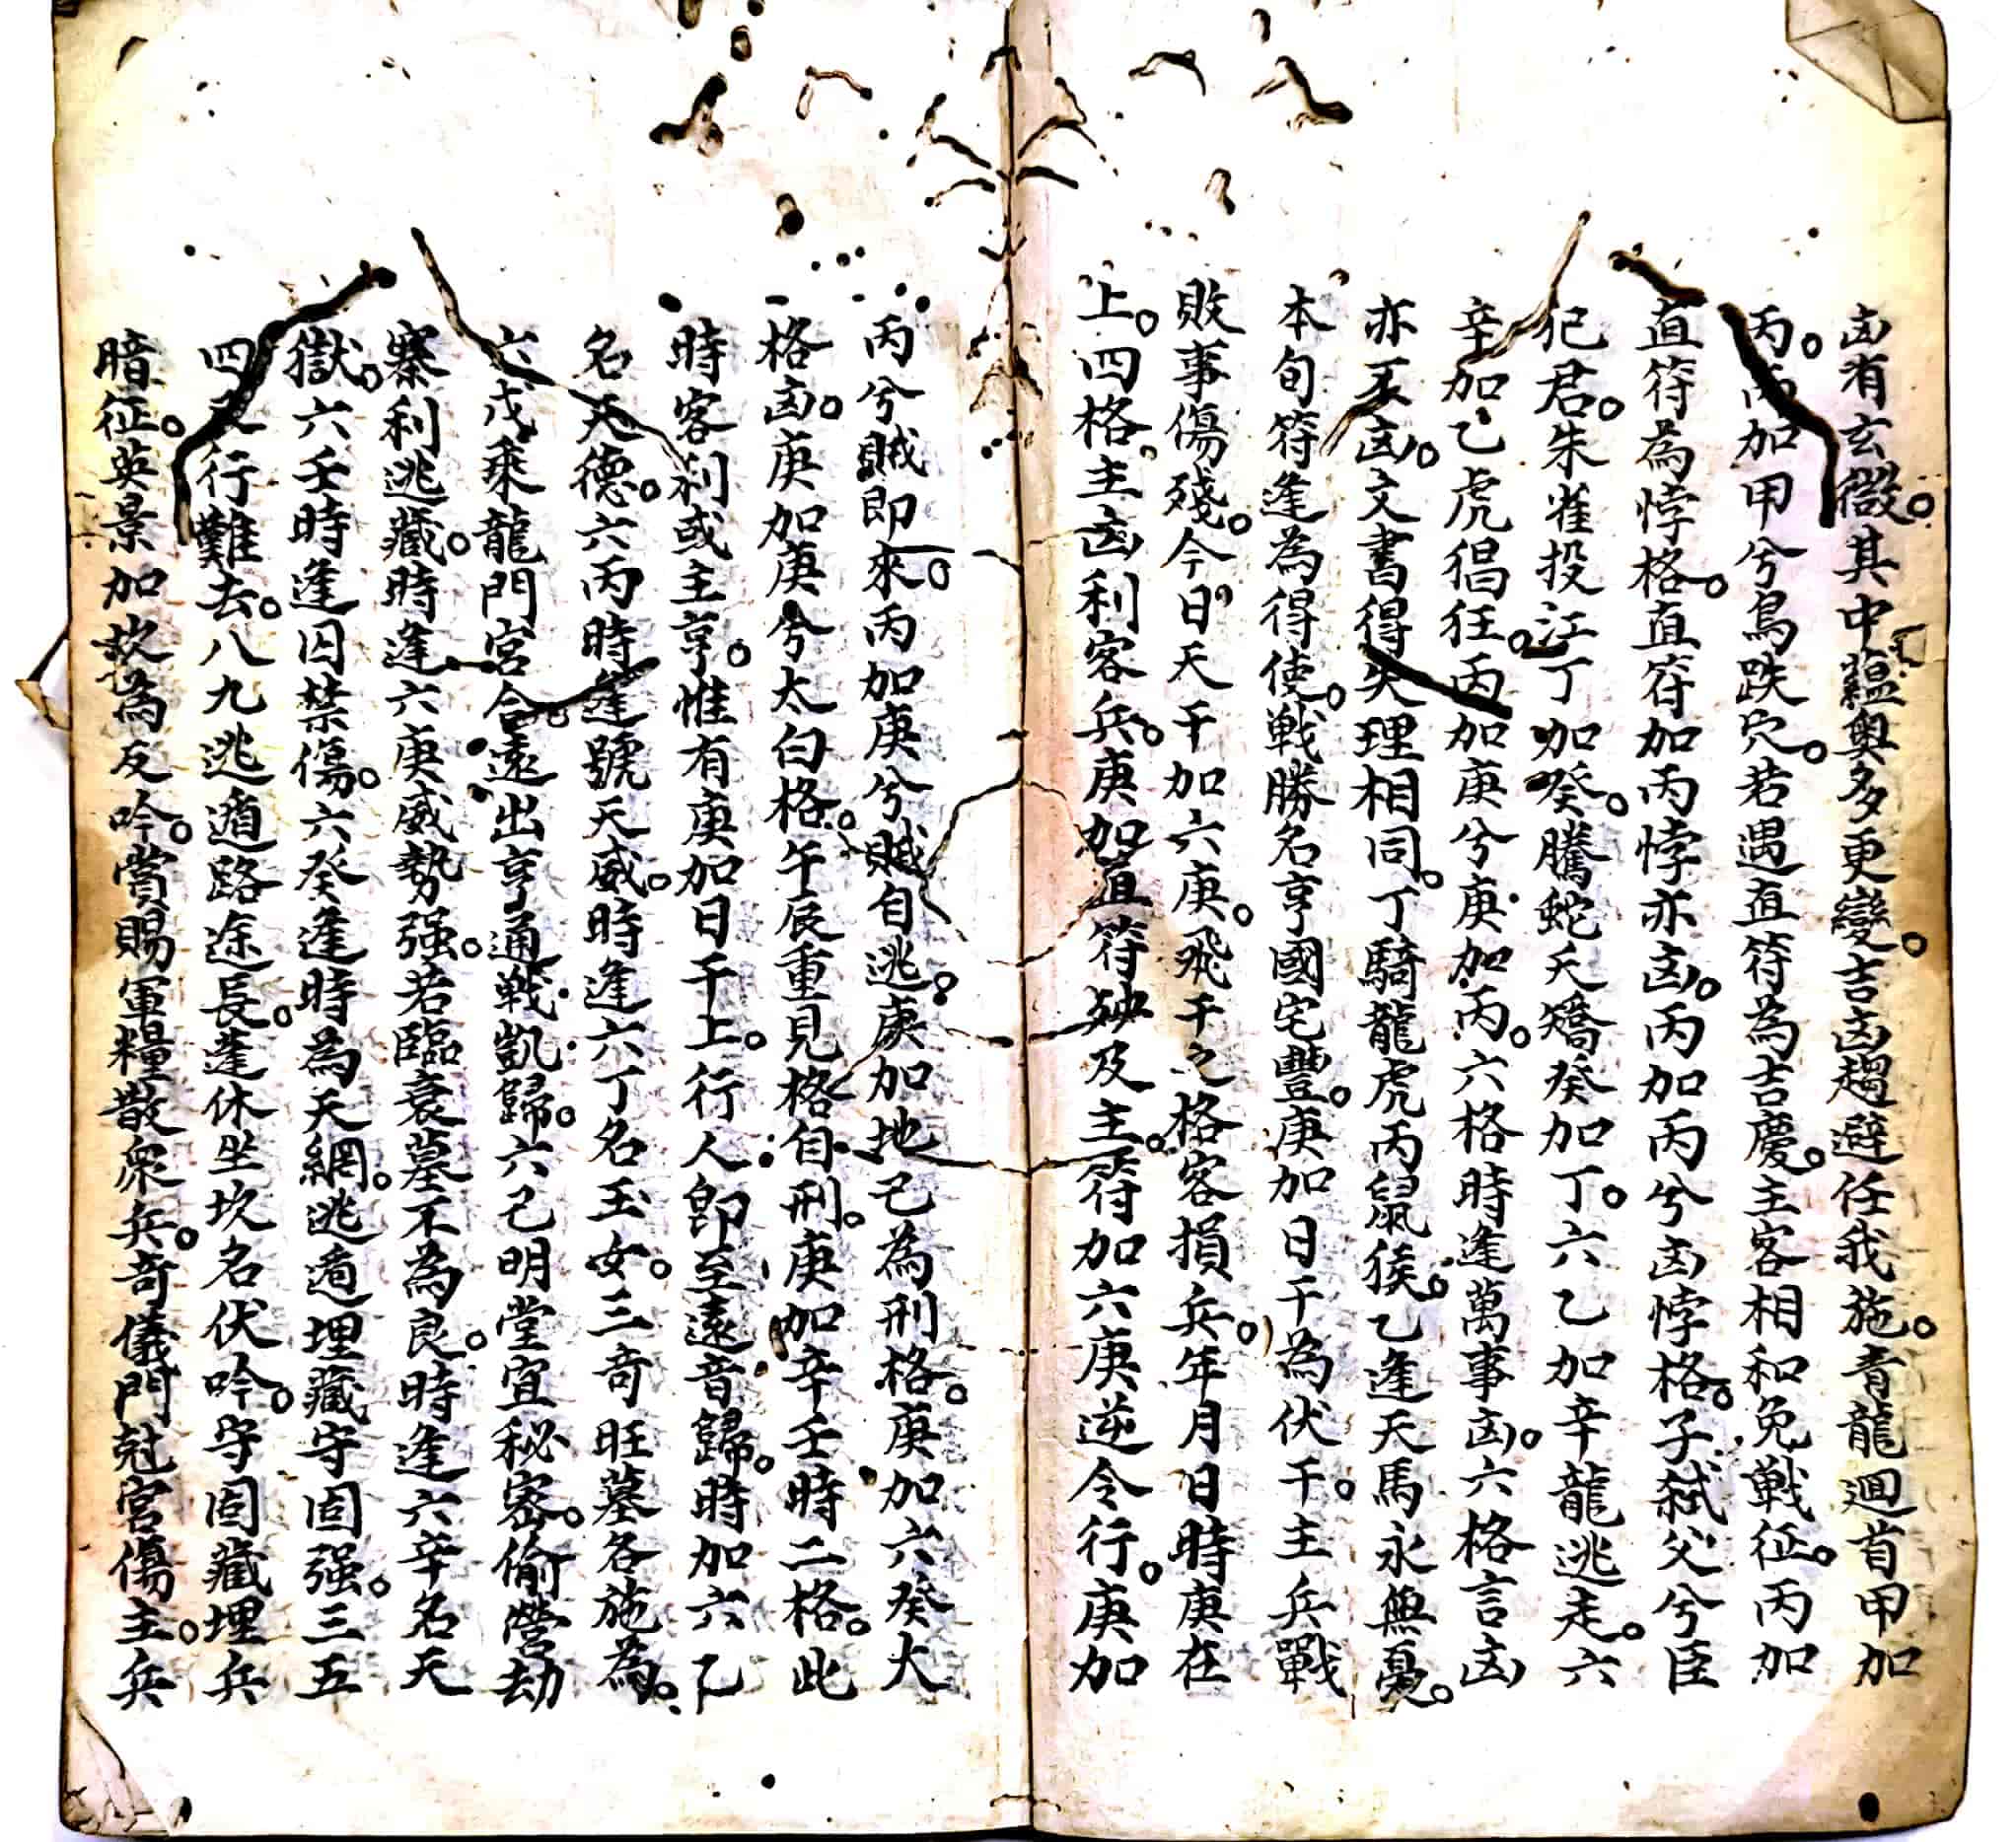 凶有玄微。其中蘊奧多更變。吉凶趨避任我施。青龍迴首甲加
丙。丙加甲兮鳥跌穴。若遇直符為吉慶。主客相和免戰征。丙加
直符為悖格。直符加丙悖亦凶。丙加丙兮凶悖格。子弒父兮臣
犯君。朱雀投江丁加癸。騰蛇夭矯癸加丁。六乙加辛龍逃走。六
辛加乙虎猖狂。丙加庚兮庚加丙。六格時逢萬事凶。六格言凶
亦不凶。文書得失理相同。丁騎龍虎丙鼠猴。乙逢天馬永無憂。
本旬符逢為得使。戰勝名亨國宅豐。庚加日干為伏干。主兵戰
敗事傷殘。今日天干加六庚。飛干之格客損兵。年月日時庚在
上。四格。主凶利客兵。庚加直符殃及主。符加六庚逆令行。庚加
丙兮賊即來。丙加庚兮賊自逃。庚加地己為刑格。庚加六癸大
格凶。庚加庚兮太白格。午辰重見格自刑。庚加辛壬時二格。此
時客利或主亨。惟有庚加日干上。行人即至遠音歸。時加六乙
名天德。六丙時逢號天威。時逢六丁名玉女。三奇旺墓各施為。
六戊乘龍門宮合。遠出亨通戰凱歸。六己明堂宜秘密。偷營劫
寨利逃藏。時逢六庚威勢强。若臨衰墓不為良。時逢六辛名天
獄。六壬時逢囚禁傷。六癸逢時為天網。逃遁埋藏守固强。三五
四足行難去。八九逃遁路途長。蓬休坐坎名伏吟。守固藏埋兵
暗征。英景加坎為反吟。賞賜軍糧散眾兵。奇儀門尅宮傷主。兵